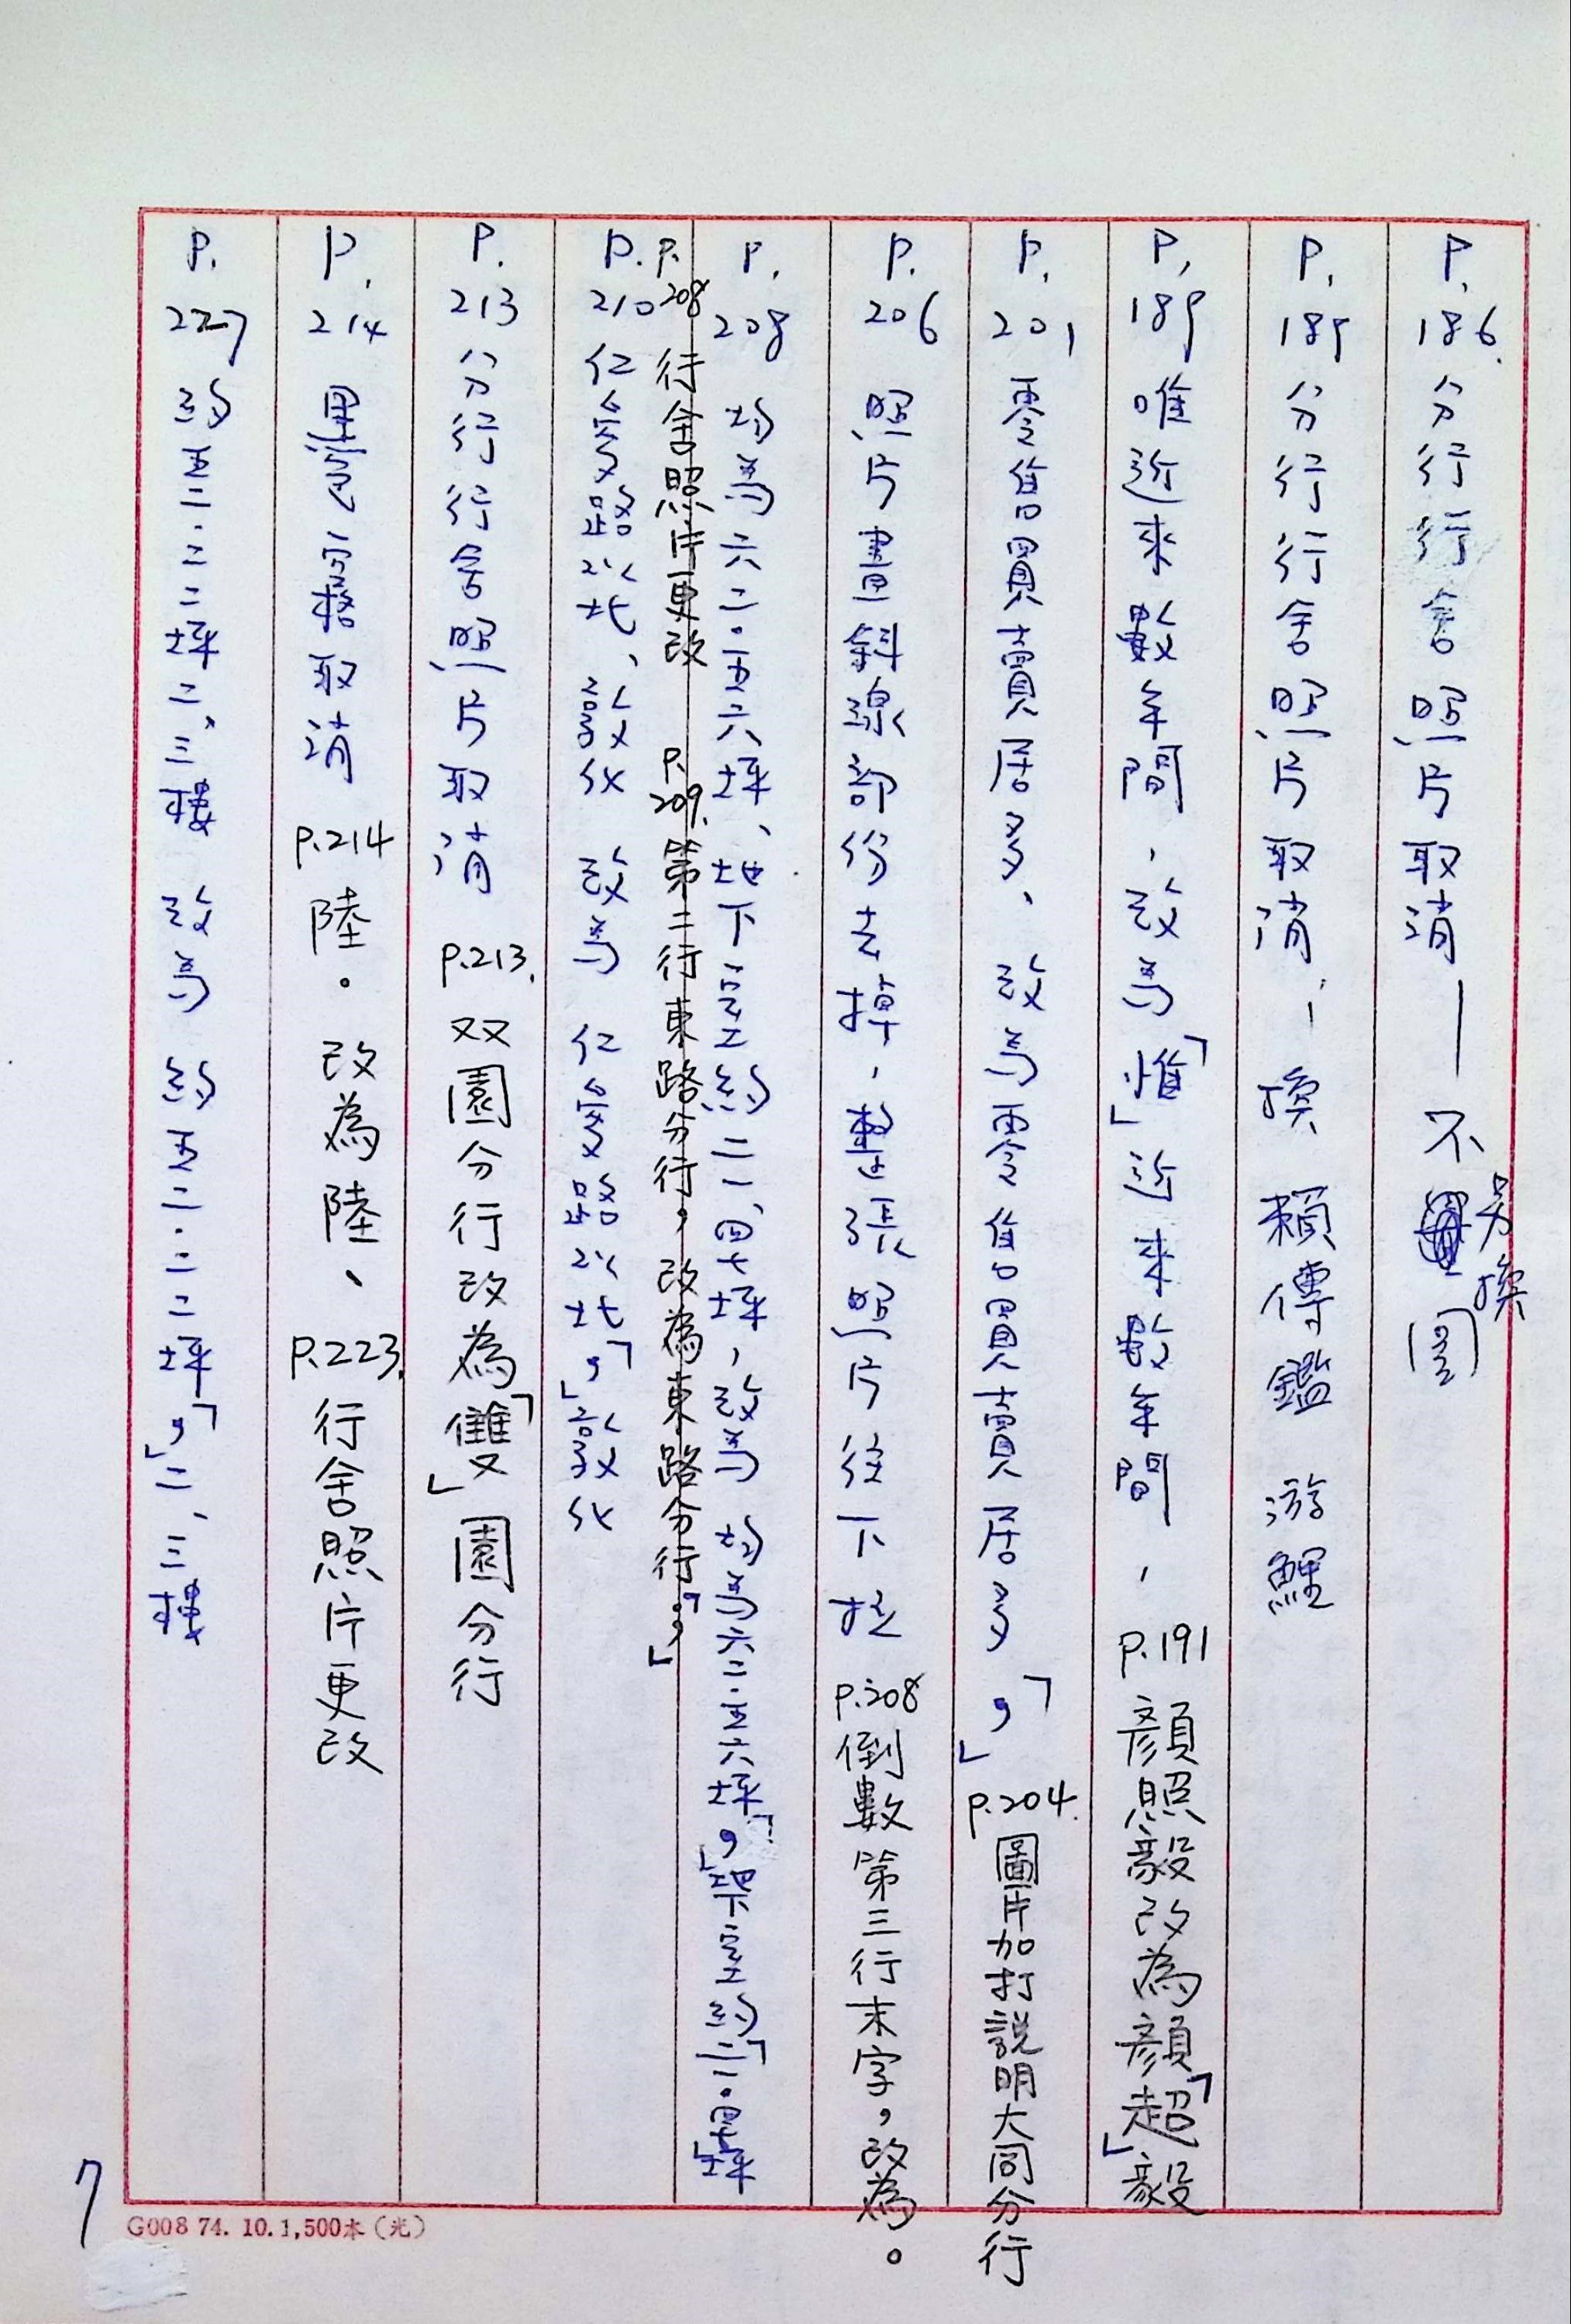 P.186.分行行舍照片取消——不另換圖
P.189分行行舍照片取消,—換賴傳鑑游鯉
P.189唯近來數年間,改為「惟」近來數年間,P.191顏照毅改為顏「超」毅
P.201零售買賣居多、改為零售買賣居多「,」P.204.圖片加打說明大同分行
P.206照片畫斜線部份去掉,整張照片往下拉P.208倒數第三行末字,改為。
P.208均為六二.五六坪、地下室約二一、四七坪,改為均為六二.五六坪「,」地下室約「二一.四七」坪
P.208行舍照片更改 P.209.第二行東路分行,改為東路分行「,」
P.210仁愛路以北、敦化改為仁愛路以北「,」敦化
P.213分行行舍照片取消P.213.双園分行改為「雙」園分行
P.214取消P.214陸。改為陸、P.223.行舍照片更改
P.227約五二.二二坪二、三樓改為約五二.二二坪「,」二、三樓
7
G008 74. 10. 1,500本(光)